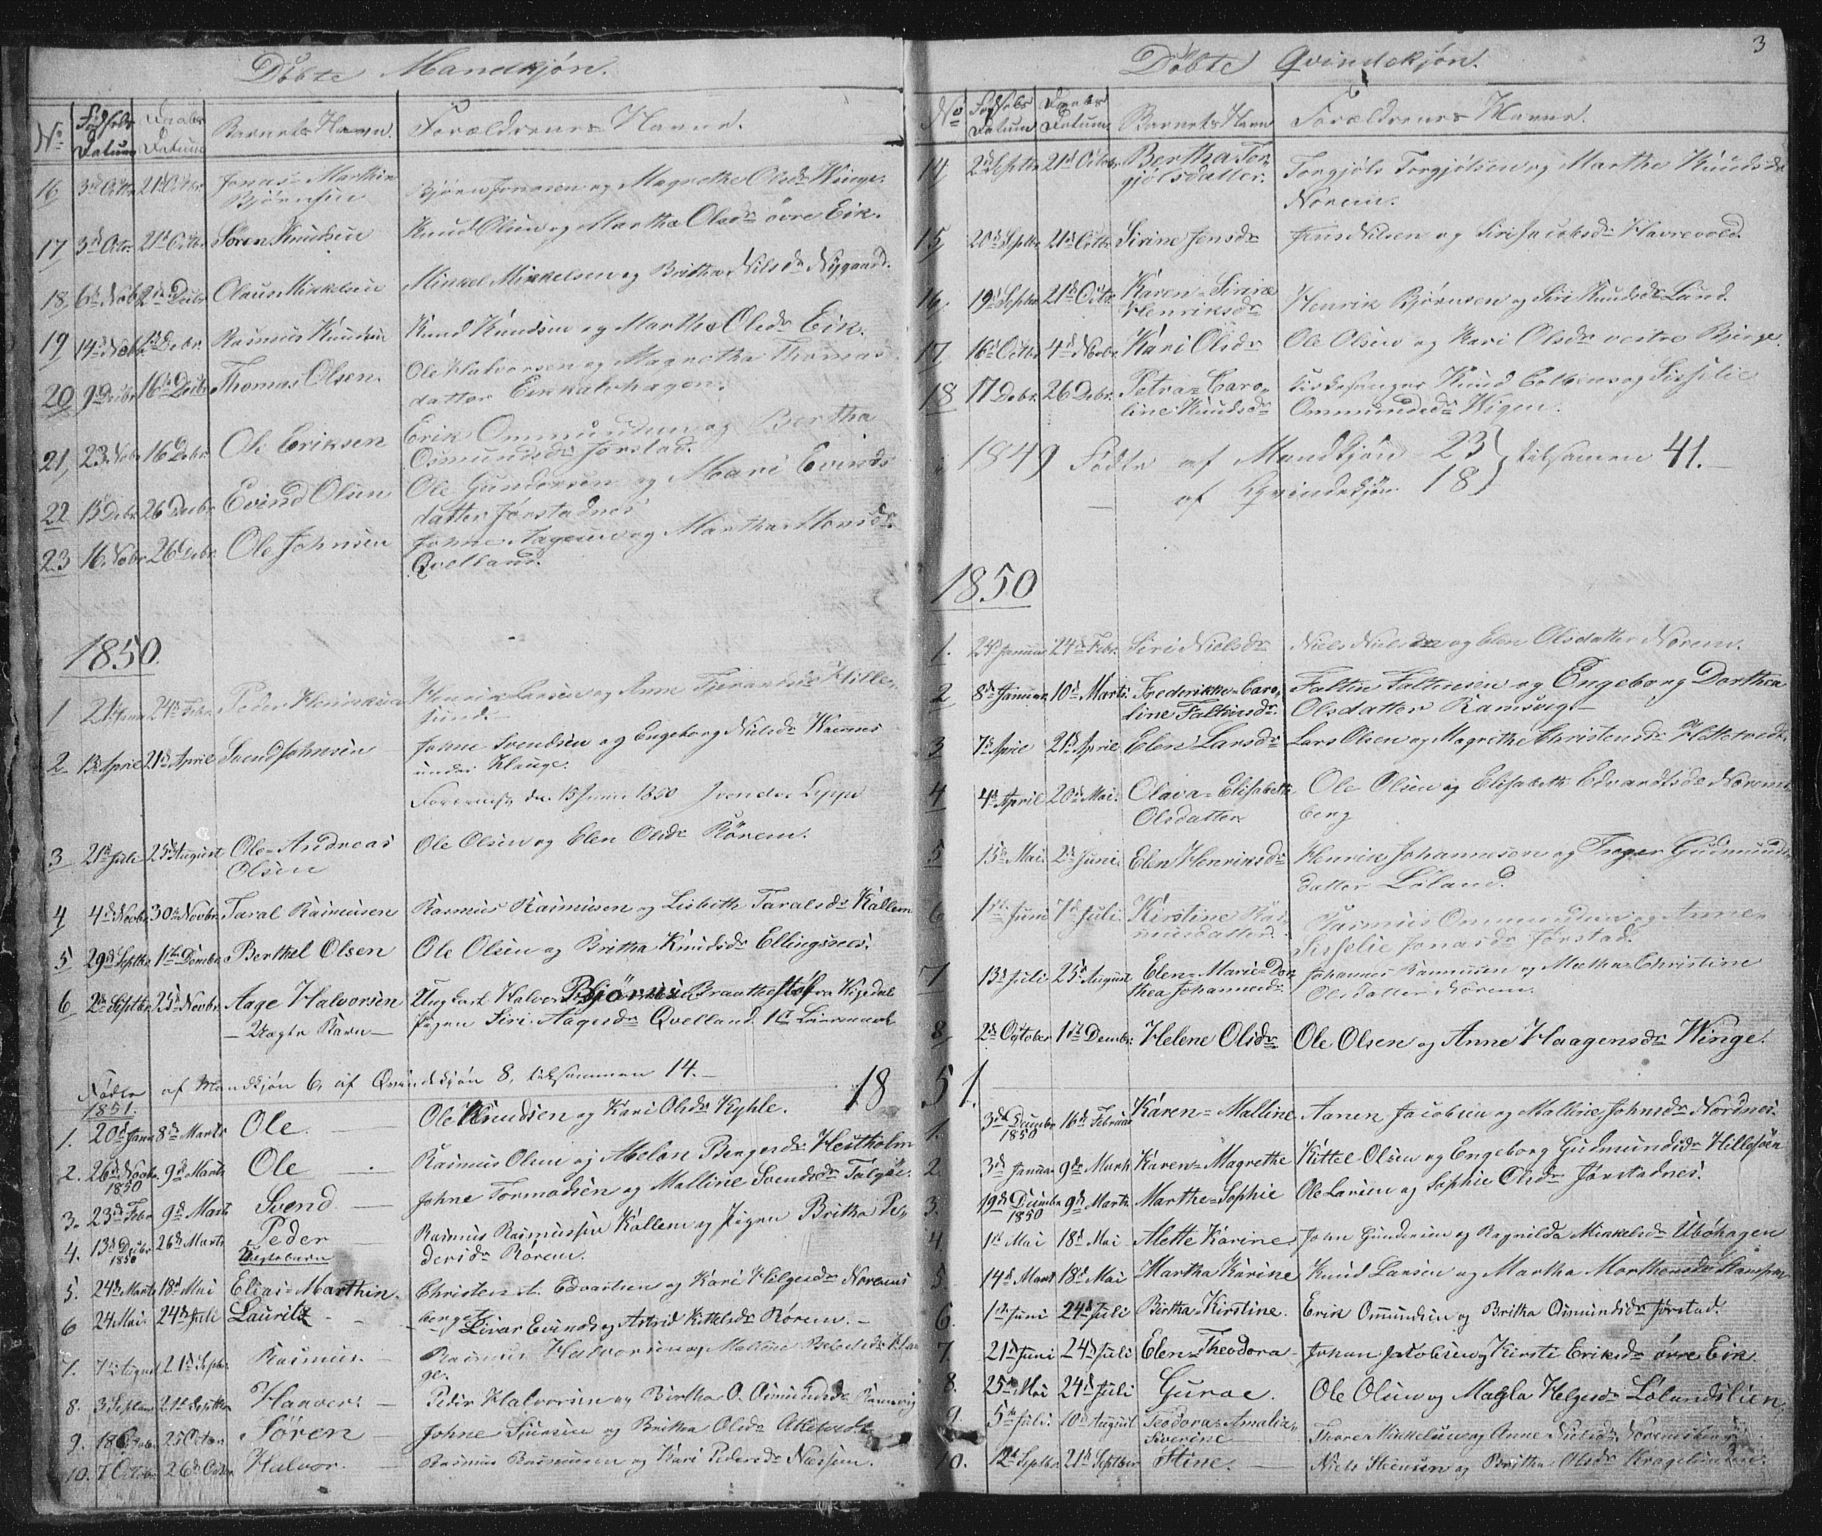 Döbte Mandkjön.
No Fødsels Datum Daabs Datum Barnets Havn Forældrenes Navne.
16 3d Octbr 21d Octbr Jonas Marthin Bjørnsen
Bjørn Jonasen og Magrethe Olsdr Winge.
17 3d Octr 21d Octbr Søren Knudsen Knud Olsen og Martha Olsdr övre Eik.
18 6d Nobr 2d Decbr Claus Mikkelsen Mikkel Mikkelsen og Britha Nilsdr Nygaard.
19 14d Nobr Debr Rasmus Knudsen Knud Knudsen og Martha Olsdr Eik.
20 9d Decbr 16d Decbr Thomas Olsen. Ole Halvorsen og Magretha Thomas
datter Eikkalehagen.
21, 23 Nobr 16 Debr Ole Eriksen Erik Ommundsen og Bertha
Osmundsdr Jørstad.
22 13 Debr 26 Decbr Evind Olsen Ole Gundersen og Mari Evinds
datter Jørstadnes
23 16 Nobr 26 Debr Ole Johnsen Johne Aagesen og Martha Monsdr
Qvelland.
1850.
1 21d Janu 24d Febr. Peder Henriksen Henrik Larsen og Anne Tjerandsdr Hille-
sund.
2 13d April 21d April Svend Johnsen Johne Svendsen og Engeborg Nielsdr
under Hauge.
den 15 Juni 1850
3 21d Juli 25d August Ole Andreas Olsen Ole Olsen og Elen Olsdr Rörem.
4 4d Novbr 30d Novbr. Taral Rasmusen Rasmus Rasmusen og Lisbeth Taralsdr Kallem
5 29d Septbr 1ste Dember Berthel Olsen Ole Olsen og Britha Knudsdr Ellingsnes.
6 2d Septbr 25d Novbr. Aage Halvorsen Ung karl Halvor Björnsen Braatheit fra
— Uægte Barn — Pigen Siri Aagesdr Qvelland. 1st Leiermaal
Fødte af Mandkjön 6, af Qvindekjön 8, tilsammen 14. — 18
1851.
1. 20d Janu 8d Marts Ole. — Ole Knudsen og Kari Olsdr Kyhle.
2. 26d Novbr 1850 9d Marts Ole — Rasmus Olsen og Melan Bergesdr Hestholm
3. 23d Febr 9d Marts Svend — Johne Tormodsen og Malline Svendsdr Talgje.
4. 13d Decbr 1850 26d Marts Peder — Uægtebarn Rasmus Rasmussen Kallem og Pigen Britha Pe-
dersdr Rörem.
5. 24d Marts 18d Mai Elias Marthin. Christen Edvartsen og Kari Helgesdr Norems
berget.
6 24 Mai 24d Juli Lauritz — Sivar Evinds og Astrid Kittelsdr Rörem. —
7. 7d August 21d Septbr Rasmus. — Rasmus Halvorsen og Malline
ge.
8. 3 Septbr 21d Septbr — Peder Halvorsen og Bertha O. Osmundsdr Ramsvig
9. 18 25 Octor Sören — Johne og Britha Olsdr
10. 7 October 26d Octor Halvor. — Rasmus Rasmusen og Kari Pedersdr Næssem.
3
Döbte Qvindekjön.
No Fødsels Datum Daabs Datum Barnets Havn Forældrenes Navne.
14 2d Septbr 21d Octbr. Bertha Tor-
gjølsdatter. Torgjøls Torgjølsen og Marthe Knudsdr
Norem.
15 20d Septbr 21d Octbr Sirine Jensdr Jens Nilsen og Siri Jacobsdr Havrevold.
16, 19d Septbr 21d Octbr Karen Sirine
Henriksdr Henrik Bjørnsen og Siri Knudsdr Lund.
17 16d Octbr 4d Novbr Kari Olsdr Ole Olsen og Kari Olsdr vestre Bjerge.
18 17 Debr 26 Debr. Petra Caro-
line Knudsdr Kirkesanger Knud Colbens og Sisselie
Ommundsdr Wigen.
1849 Födte af Mandkjön 23 } tilsamen 41. —
af Qvindekjön 18
1850
1. 24d Januar 24d Febr. Siri Nielsdr Niels Nielsen og Elen Olsdatter Norem.
2 8d Januar 10d Marts Frederikke Caro-
line Faltinsdr. Faltin Faltinsen og Engeborg Dorthea
Olsdatter Ramsvig —
3 7d April 21d April Elen Larsdr Lars Olsen og Magrethe Christensdr Hettervedt.
4 4d April 20d Mai. Olava Elisabeth
Olsdatter Ole Olsen og Elisabeth Edvardsdr Norems
berg
5 15d Mai 2d Juni Elen Henriksdr Henrik Johannesen og Inger Gudmunds
datter Löland.
6 1ste Juni 7d Juli. Kirstine Ras-
musdatter. Rasmus Ommundsen og Anne
Sisselie Jonasdr Jørstad.
7 13d Juli 25d August Elen Marie Dor
thea Johannesdr Johannes Rasmusen og Metha Christine
Olsdatter Norem.
8 2d October 1ste Dembr. Helene Olsdr Ole Olsen og Anne Haagensdr Winge.
51.
1. 3d Decmbr 1850 16d Februar Karen Malline Aanen Jacobsen og Malline Johnsdr Nordnes.
2. 3d Januar 9d Marts Karen Magrethe Kittel Olsen og Engeborg Gudmundsdr Hillesöen
3. 19d Decmbr 1850 9d Marts Marthe Sophie Ole Larsen og Sophie Olsdr Jørstadnes.
4 1st Mai 18d Mai Alette Karine John Gundersen og Ragnilda Mikkelsdr Ubøhagen
5 14d Mart 18d Mai Martha Karine Knud Larsen og Martha
6. 1ste Juni 24d Juli Birtha Kirstine. Erik Omundsen og Britha Osmundsdr Jørstad.
7. 21d Juni 24d Juli Elen Theodora Johan Jakobsen og Kirsti Eriksdr övre Eik
8. 25d Mai 24d Juli Guroe. Ole Olsen og Magla Helgesdr Lølandslien.
9. 5te Juli. 10d August Teodora Amalia
Siverine — Thore Mikkelsen og Anne Nielsdr Noremsberg
10. 12d Septbr 21d Septbr Stine. — Niels Steensen og Britha Olsdr Kragelunden.